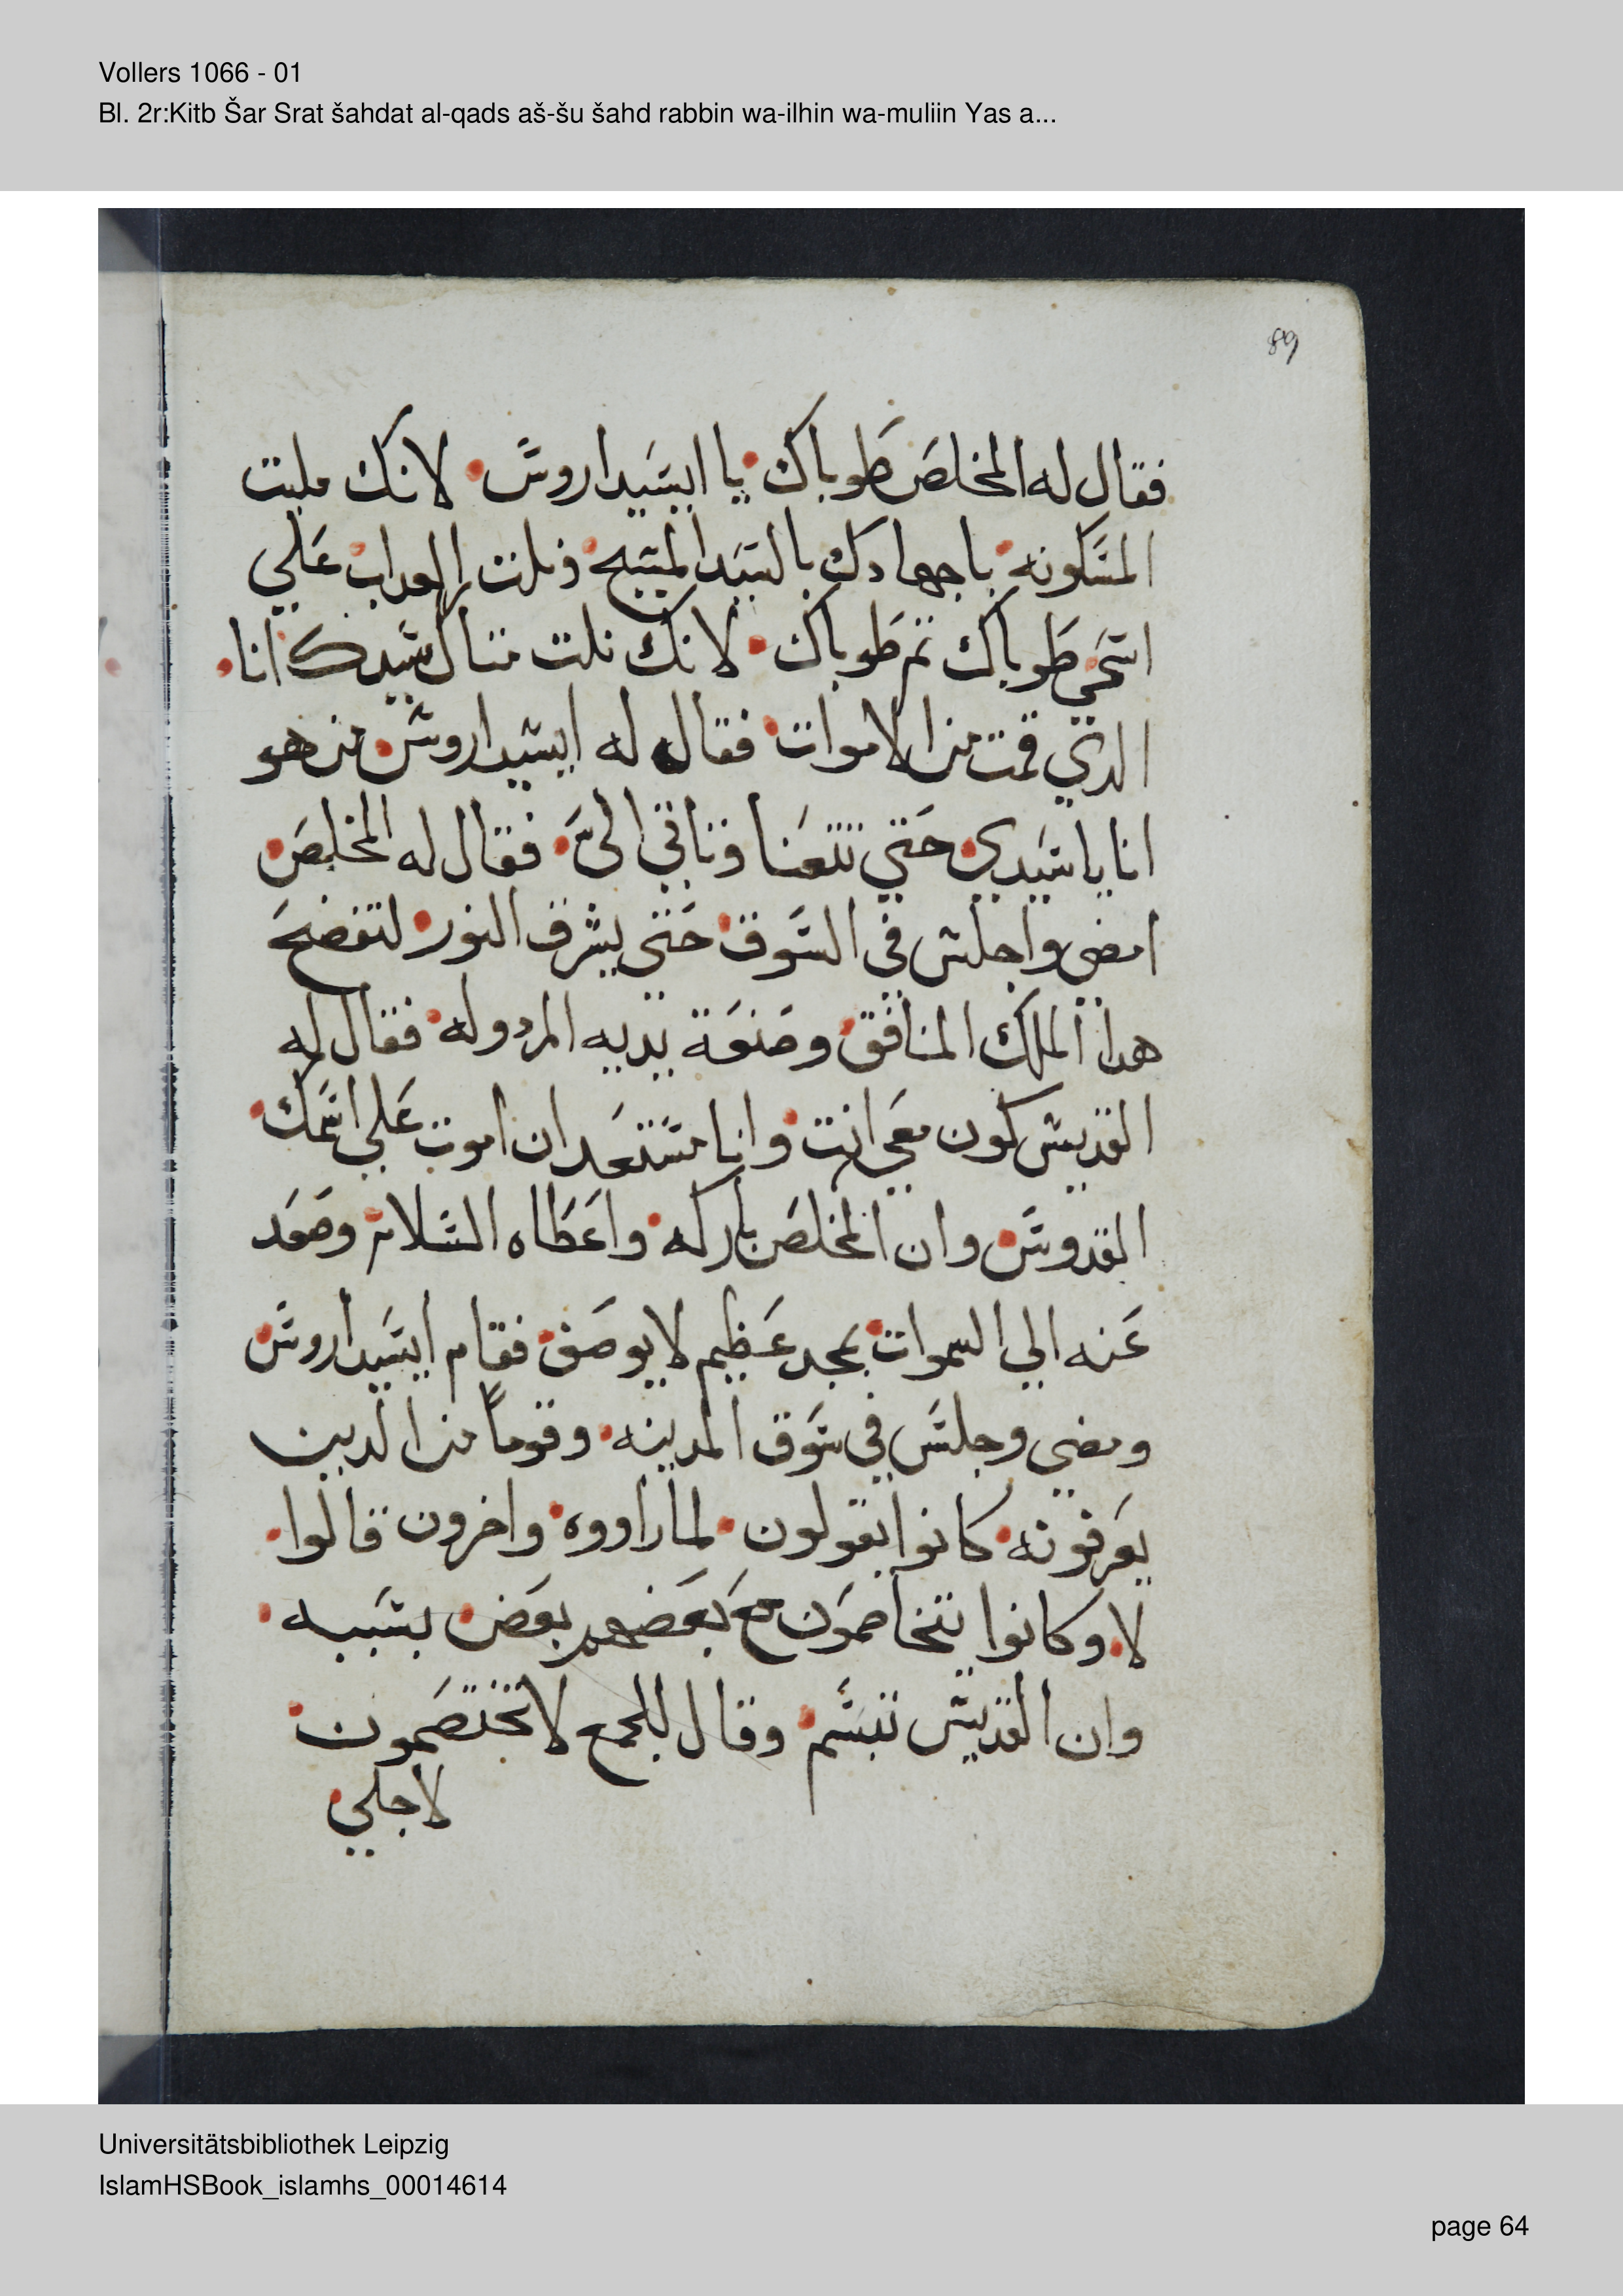 Vollers 1066 - 01
Bl. 2r:Kitb Šar Srat šahdat al-qads aš-šu šahd rabbin wa-ilhin wa-muliin Yas a...
89
فقال له المخلص طوباك يا ايسيداروس لانك مليت
المسكونه باجهادك بالسيد المسيح ونلت العداب علي
اسمي طوباك تم طوباك لانك نلت متال سيدك انا
الدي قمت من الاموات فقال له ايسيداروس من هو
انا يا سيدي حتي تتعنا وتاتي الىَّ فقال له المخلص
امضي واجلس في السوق حتي يشرف النور لتفضح
هدا الملك المنافق وصنعة يديه المردوله فقال له
القديس كون معي انت وانا مستعد ان اموت علي اسمك
القدوس وان المخلص باركه واعطاه السلام وصعد
عنه الي السموات بمجد عظيم لا يوصف فقام ايسيداروس
ومضي وجلس في سوق المدينه وقوماً من الدين
يعرفونه كانوا يقولون لما راووه واخرون قالوا
لا وكانوا يتخاصمون مع بعضهم بعض بسببه
وان القديس تبسم وقال للجمع لا تختصمون
لاجلي
Universitätsbibliothek Leipzig
IslamHSBook_islamhs_00014614
page 64